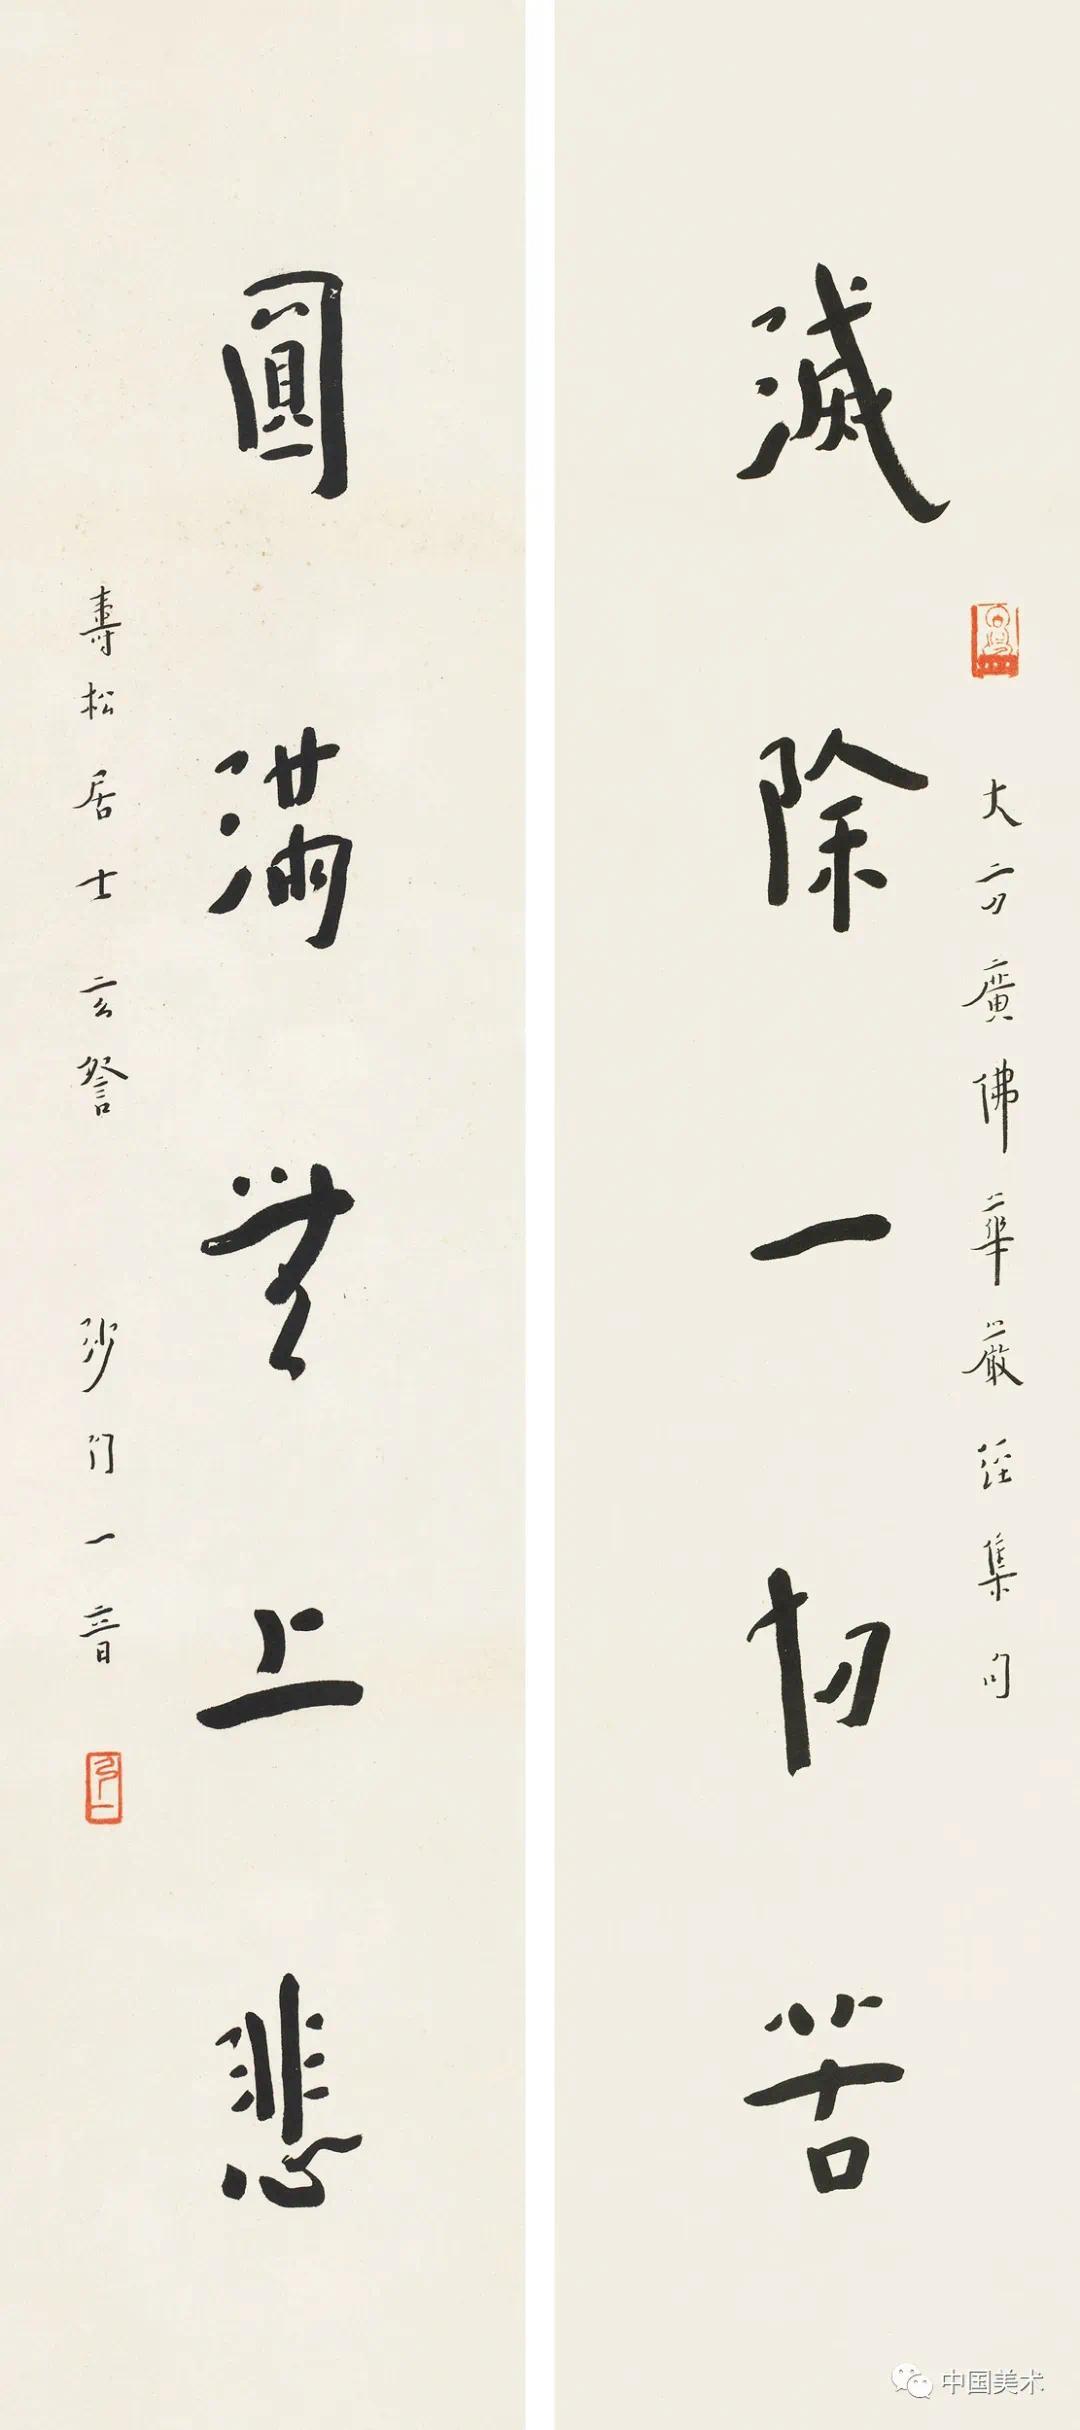 大方廣佛華嚴經集句
滅除一切苦
圓滿無上悲
壽松居士玄詧 沙門一音
弘一
中国美术